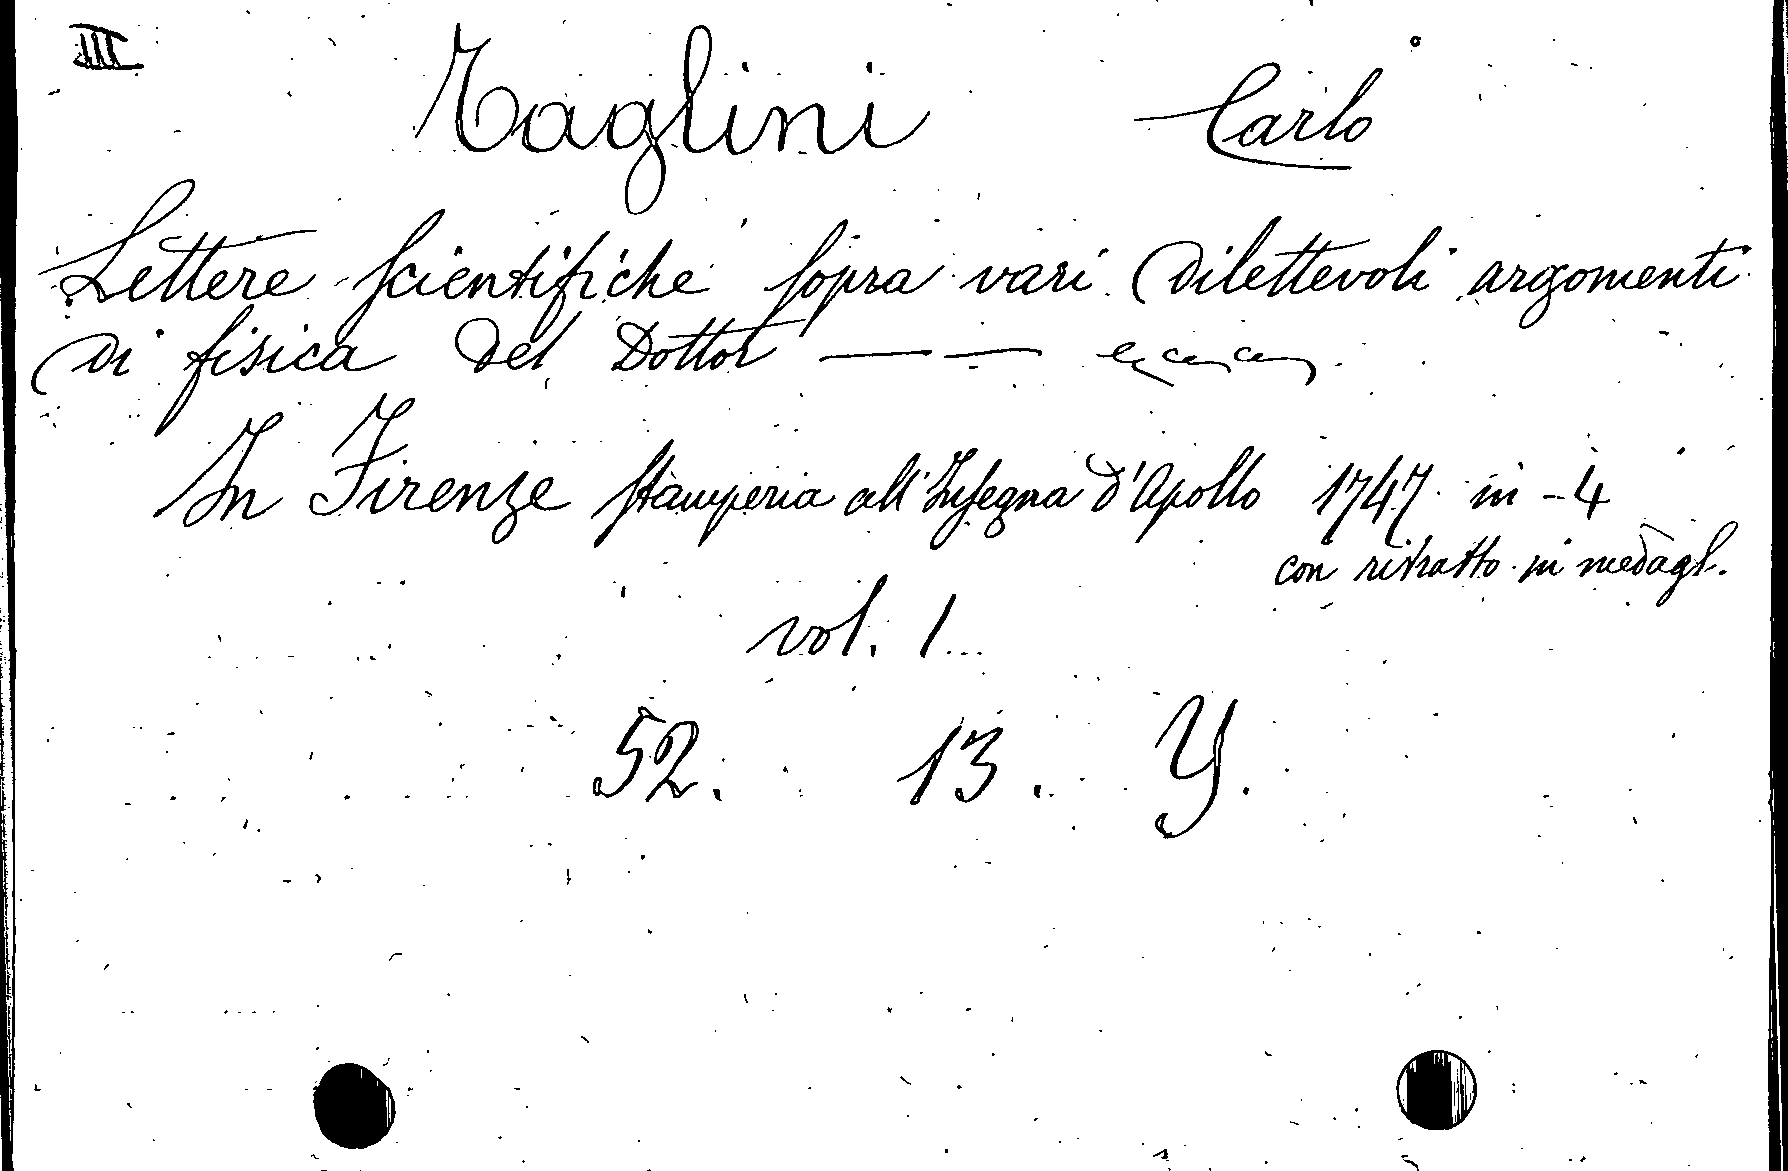 III
Taglini Carlo
Lettere scientifiche sopra vari dilettevoli argomenti
di fisica del Dottor — —
In Firenze Stamperia all'Insegna d'Apollo 1747. in - 4
con ritratto in medagl.
vol. 1
52. 13. Y.